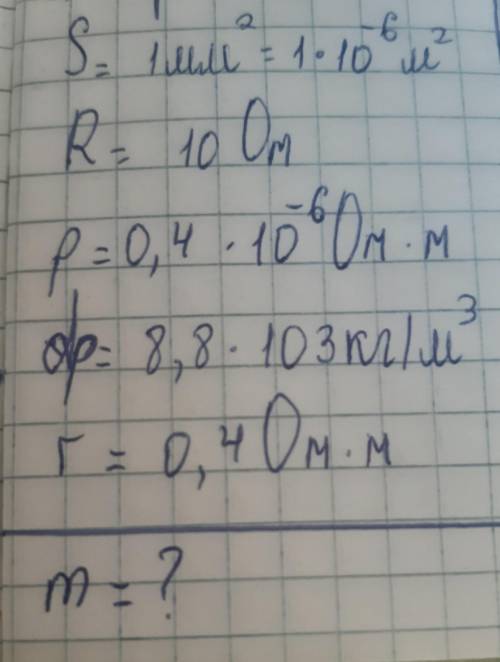 S = 1мм² = 1·10⁻⁶ м²
R = 10 Ом
ρ = 0,4 · 10⁻⁶ Ом · м
= 8,8 · 103 кг/м³
г = 0,4 Ом · м
m = ?